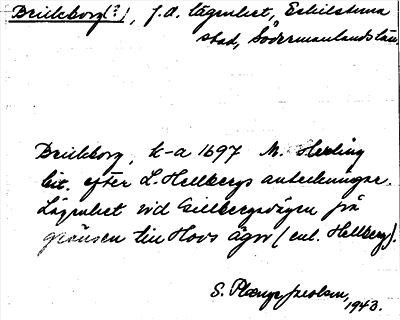 Brickborg(?), f.d. lägenhet, Eskilstuna
stad, Södermanlands län.
Brickborg, k-a 1697 M. Hesling
cit. efter L. Hellbergs anteckningar.
Lägenhet vid Gillbergavägen på
gränsen till Hovs ägor (enl. Hellberg).
S. Plænge Jacobson,
1943.